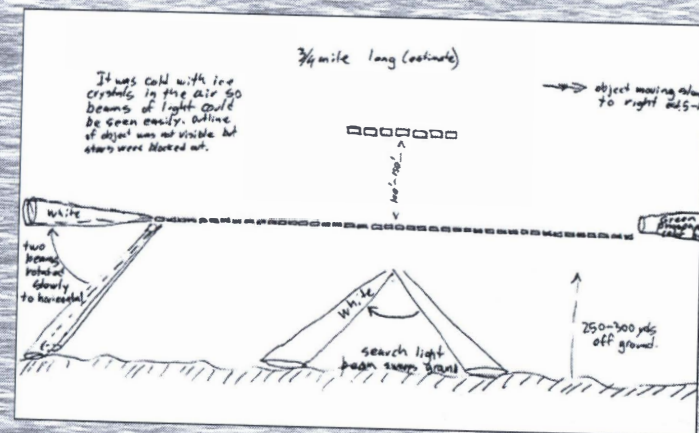 3/4 mile long (estimate)
It was cold with ice
crystals in the air so
beams of light could
be seen easily. Outline
of object was not visible but
stars were blocked out.
object moving
to right
100'-150'
White
two
beams
rotated
slowly
to horizontal
White
search light
beam sweeps ground
250-300 yds
off ground.
Green